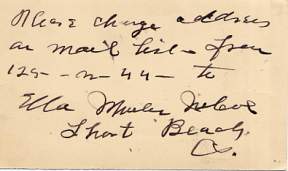 Please change address
on mail list - from
129 - W - 44 - to
Ella
Short Beach
Ct.